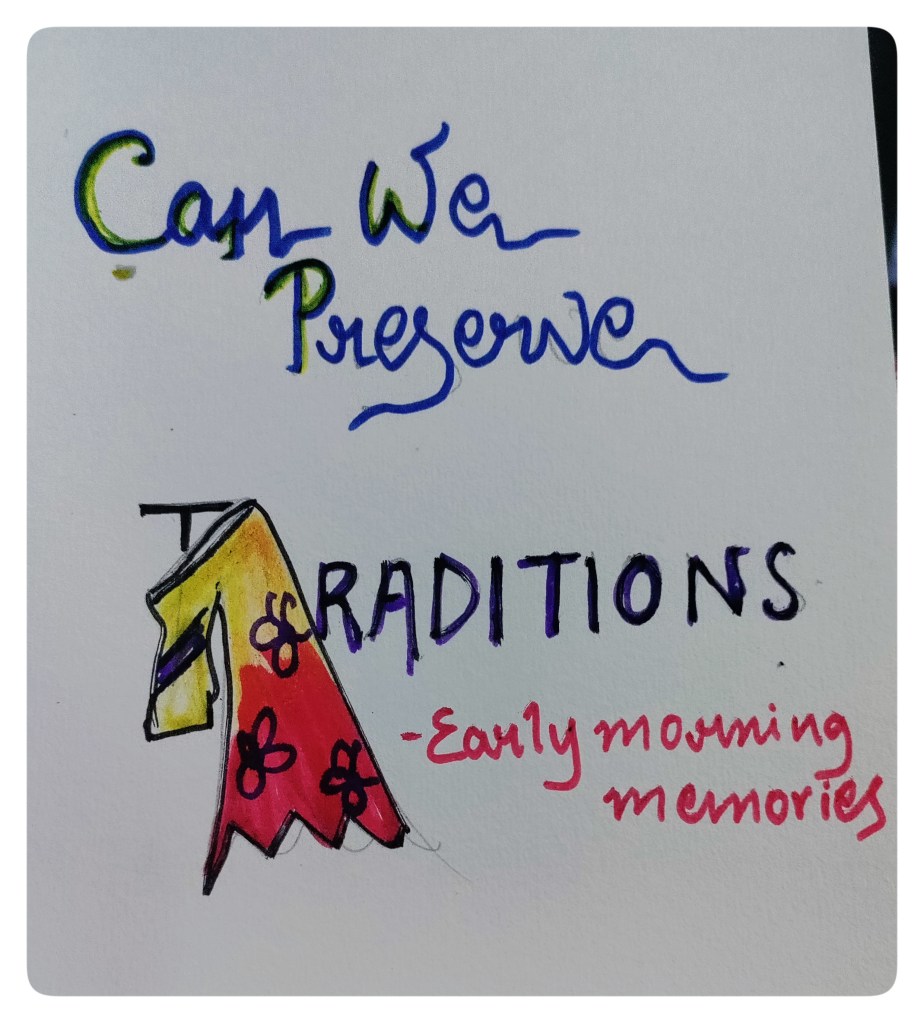 Can We
Preserve
TRADITIONS
-Early morning
memories